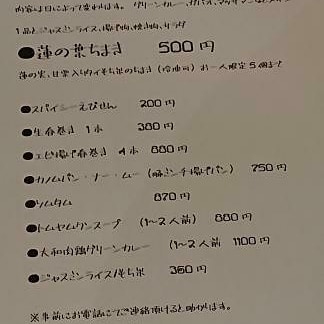 内容は日によって変わります。グリーンカレー、ガパオ、マッサマンなど
1品とジャスミンライス、揚げ肉、焼き肉、サラダ
●蓮の葉ちまき 500円
蓮の実、甘栗入り肉イもち米のちまき(冷凍可) お一人限定5個まで
●スパイシーえびせん 200円
●生春巻き 1本 380円
●エビ揚げ春巻き 4本 880円
●カノムパン・ナー・ムー (豚ミンチ揚げパン) 750円
●ソムタム 870円
●トムヤムクンスープ (1〜2人前) 880円
●大和肉鶏グリーンカレー (1〜2人前) 1100円
●ジャスミンライス/もち米 350円
※事前にお電話にてご連絡頂けると助かります。